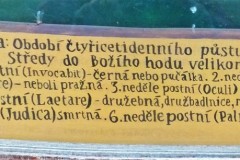 : Období čtyřicetidenního půstu
Středy do Božího hodu velikon
tní (Invocabit)-černá nebo pučálka. 2.ne
re)-neboli pražná. 3.neděle postní (Oculi)
ostní (Laetare) - družebná, družbadlnice,
(Judica) smrtná. 6.neděle postní (Pal